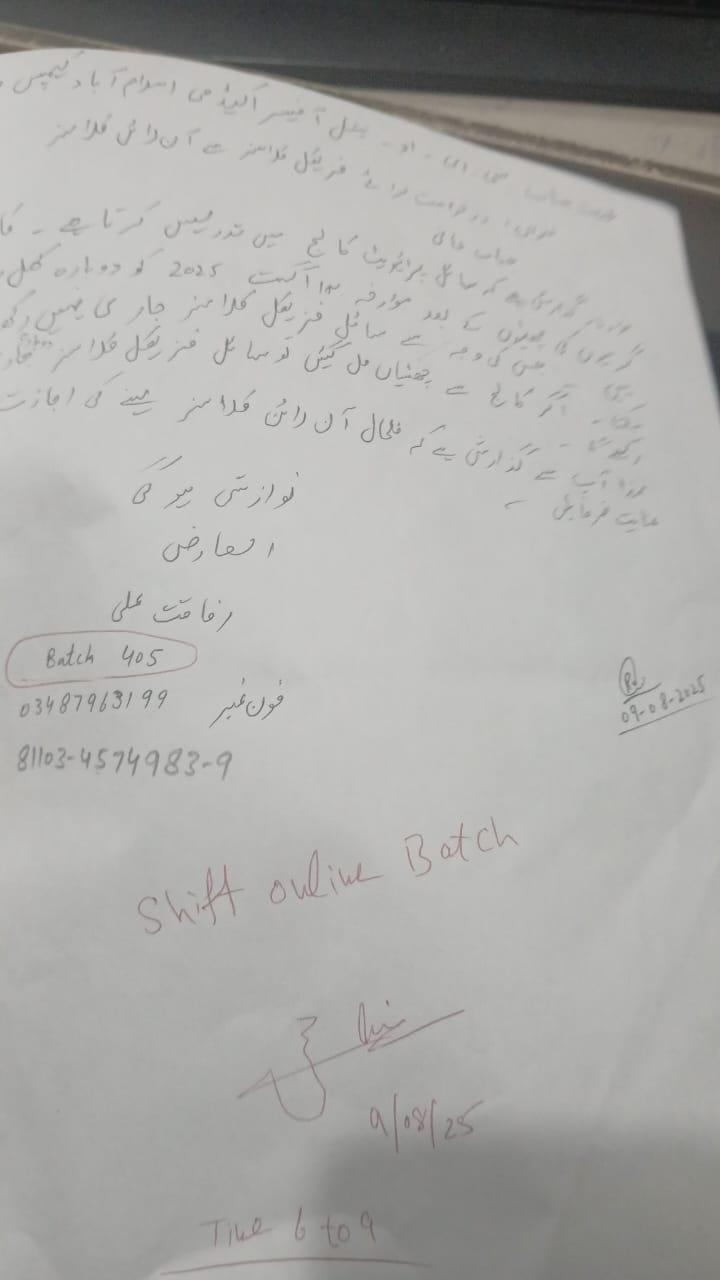 بخدمت جناب سی۔ای۔او۔ نیشنل آفیسر اکیڈمی اسلام آباد کیمپس
عنوان: درخواست برائے فزیکل کلاسز سے آن لائن کلاسز
جناب عالی
گزارش ہے کہ سائل پرائیویٹ کالج میں تدریس کرتا ہے ۔
گرمیوں کی چھٹیوں کے بعد مورخہ اگست 2025 کو دوبارہ کھل
جس کی وجہ سے سائل فزیکل کلاسز جاری نہیں رکھ
سکتا۔ اگر کالج سے چھٹیاں مل گئیں تو سائل فزیکل کلاسز
رکھے گا ۔
لہذا آپ سے گذارش ہے کہ فلحال آن لائن کلاسز لینے کی اجازت
عنایت فرمائیں ۔
نوازش ہو گی
العارض
رفاقت علی
Batch 405
فون نمبر 03487963199
81103-4574983-9
09-08-2025
Shift online Batch
9/08/25
Time 6 to 9